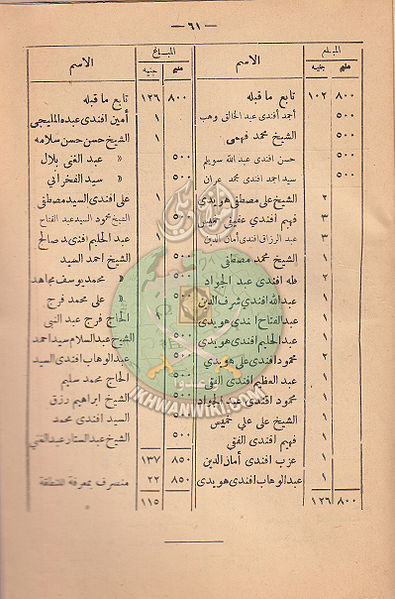 — ٦١ —
المبلغ الاسم
مليم جنيه
٨٠٠ ١٠٢ تابع ما قبله
٥٠٠ أحمد أفندى عبد الخالق وهب
٥٠٠ الشيخ محمد فهمى
٥٠٠ حسن افندى عبد الله سويلم
٥٠٠ سيد احمد افندى محمد عمران
٢ الشيخ على مصطفى هويدى
٣ فهيم أفندى عفيفى خميس
٣ عبد الرزاق افندى أمان الدين
١ الشيخ محمد مصطفى
٢ طه افندى عبد الجواد
١ عبد الله افندى شرف الدين
١ عبد الفتاح افندى هويدى
١ عبد الحليم افندى هويدى
٢ محمود افندى على هويدى
١ عبد العظيم افندى الفقى
١ محمود افندى عبد الجواد
١ الشيخ على على خميس
١ فهيم افندى الفقى
١ عزب افندى أمان الدين
١ عبد الوهاب افندى هويدى
٨٠٠ ١٢٦
المبلغ الاسم
مليم جنيه
٨٠٠ ١٢٦ تابع ما قبله
١ أمين افندى عبده المليجى
١ الشيخ حسن حسن سلامه
٥٠٠ » عبد الغنى بلال
٥٠٠ » سيد الفخرانى
١ على افندى السيد مصطفى
٥٠٠ الشيخ محمود السيد عبد الفتاح
١ عبد الحليم افندى صالح
الشيخ احمد السيد
٥٠٠ » محمد يوسف مجاهد
٥٠٠ » على محمد فرج
الحاج فرج عبد النبى
الشيخ عبد السلام سيد احمد
٥٠٠ عبد الوهاب افندى السيد
٥٠٠ الحاج محمد سليم
٥٠٠ الشيخ ابراهيم رزق
٥٠٠ السيد افندى محمد
٥٠٠ الشيخ عبد الستار عبد الغنى
٨٥٠ ١٣٧
٨٥٠ ٢٢ منصرف بمعرفة المنطقة
١١٥
وأعدوا
IKHWANWIKI.COM